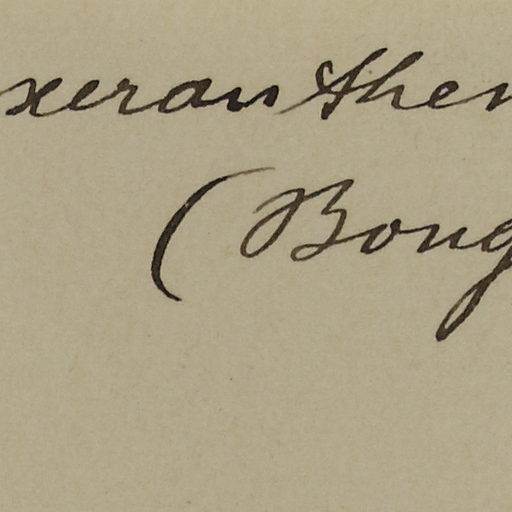 xeranthem
(Bong